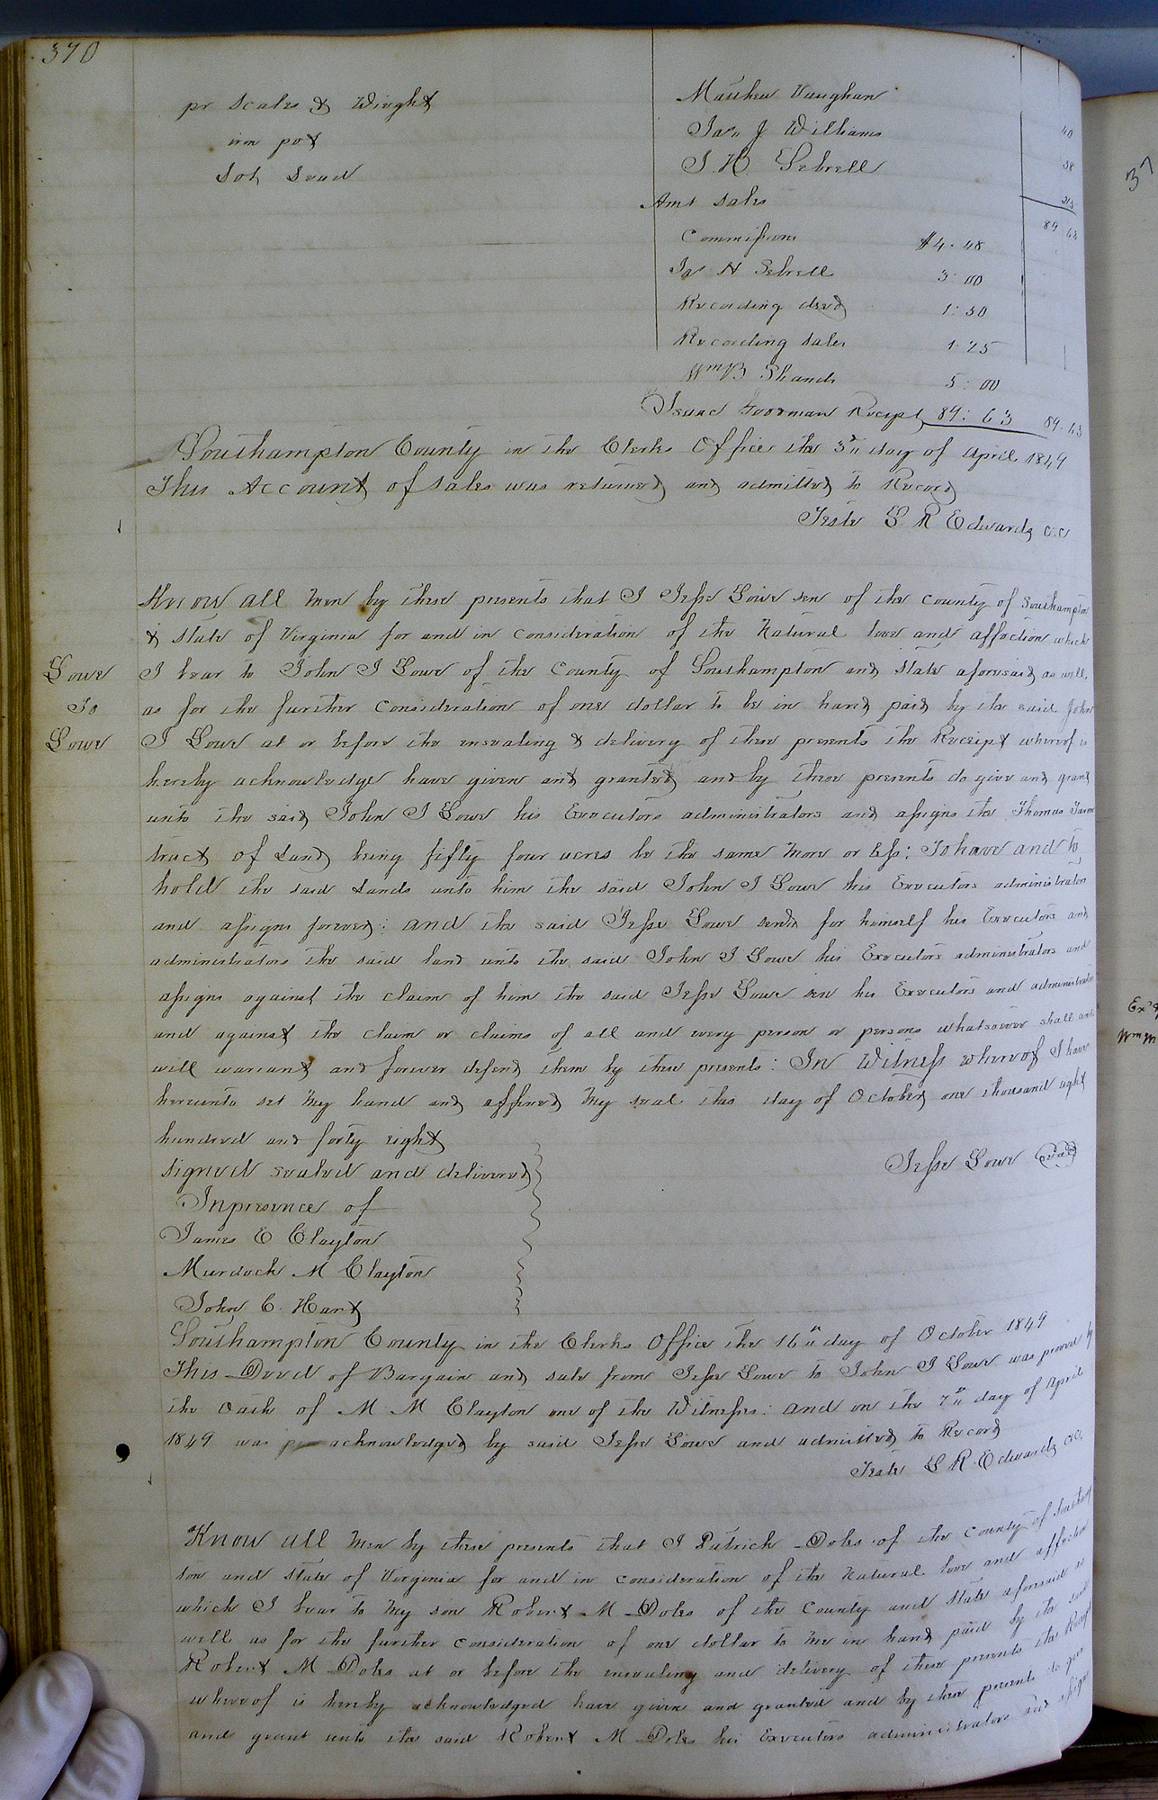 370
pr Scales & Wieght Matthew Vaughan
iron pot Jas. J Williams 40
Sot, Sead J. H Sebrell 38
Amt Sales 89 63
Commissions $4.48
Jas H Sebrell 3:00
Recording deed 1:50
Recording sales 1.25
Wm B Shands 5:00
Isaac Receipt 89:63 89.63
Southampton County in the Clerks Office the 3d day of April 1849
This Account of sales was returned and admitted to Record
Teste L R Edwards c.c
Know all men by these presents that I Jesse Lowe sen of the county of Southampton
& State of Virginia for and in consideration of the Natural love and affection which
Lowe
To
Lowe
I bear to John I Lowe of the County of Southampton and State aforesaid as well,
as for the further consideration of one dollar to be in hand paid by the said John
I Lowe at or before the ensealing & delivery of these presents the Receipt whereof is
hereby acknowledge have given and granted and by these presents do give and grant
unto the said John I Lowe his Executors administrators and assigns the Thomas
tract of Land being fifty four acres be the same more or less: To have and to
hold the said Lands unto him the said John I Lowe his Executors administrators
and assigns forever: and the said Jesse Lowe senr for himself his Executors and
administrators the said land unto the said John I Lowe his Executors administrators and
assigns against the claim of him the said Jesse Lowe sen his Executors and administrators
and against the claim or claims of all and every person or persons whatsoever shall and
will warrant and forever defend them by these presents: In Witness whereof I have
hereunto set my hand and affixed my seal this day of October one thousand eight
hundred and forty eight
signed sealed and delivered Jesse Lowe seal
In presence of
James E Clayton
Murdock M Clayton
John C. Hart
Southampton County in the Clerks Office the 16th day of October 1849
This Deed of Bargain and sale from Jesse Lowe to John I Lowe was proved by
the Oath of M M Clayton one of the Witnesses: and on the 7th day of April
1849 was acknowledged by said Jesse Lowe and admitted to Record
Teste L R Edwards cc.
Know all men by these presents that I Patrick Doles of the County of Southamp
ton and State of Virginia for and in consideration of the Natural love and affection
which I bear to my son Robert M Doles of the County and State aforesaid as
well as for the further consideration of one dollar to me in hand paid by the said
Robert M Doles at or before the ensealing and delivery of these presents the Receipt
whereof is hereby acknowledged have given and granted and by these presents do give
and grant unto the said Robert M Doles his Executors administrators and assigns
37
Wm M